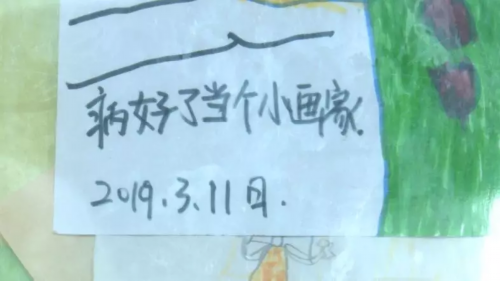 病好了当个小画家.
2019.3.11日.